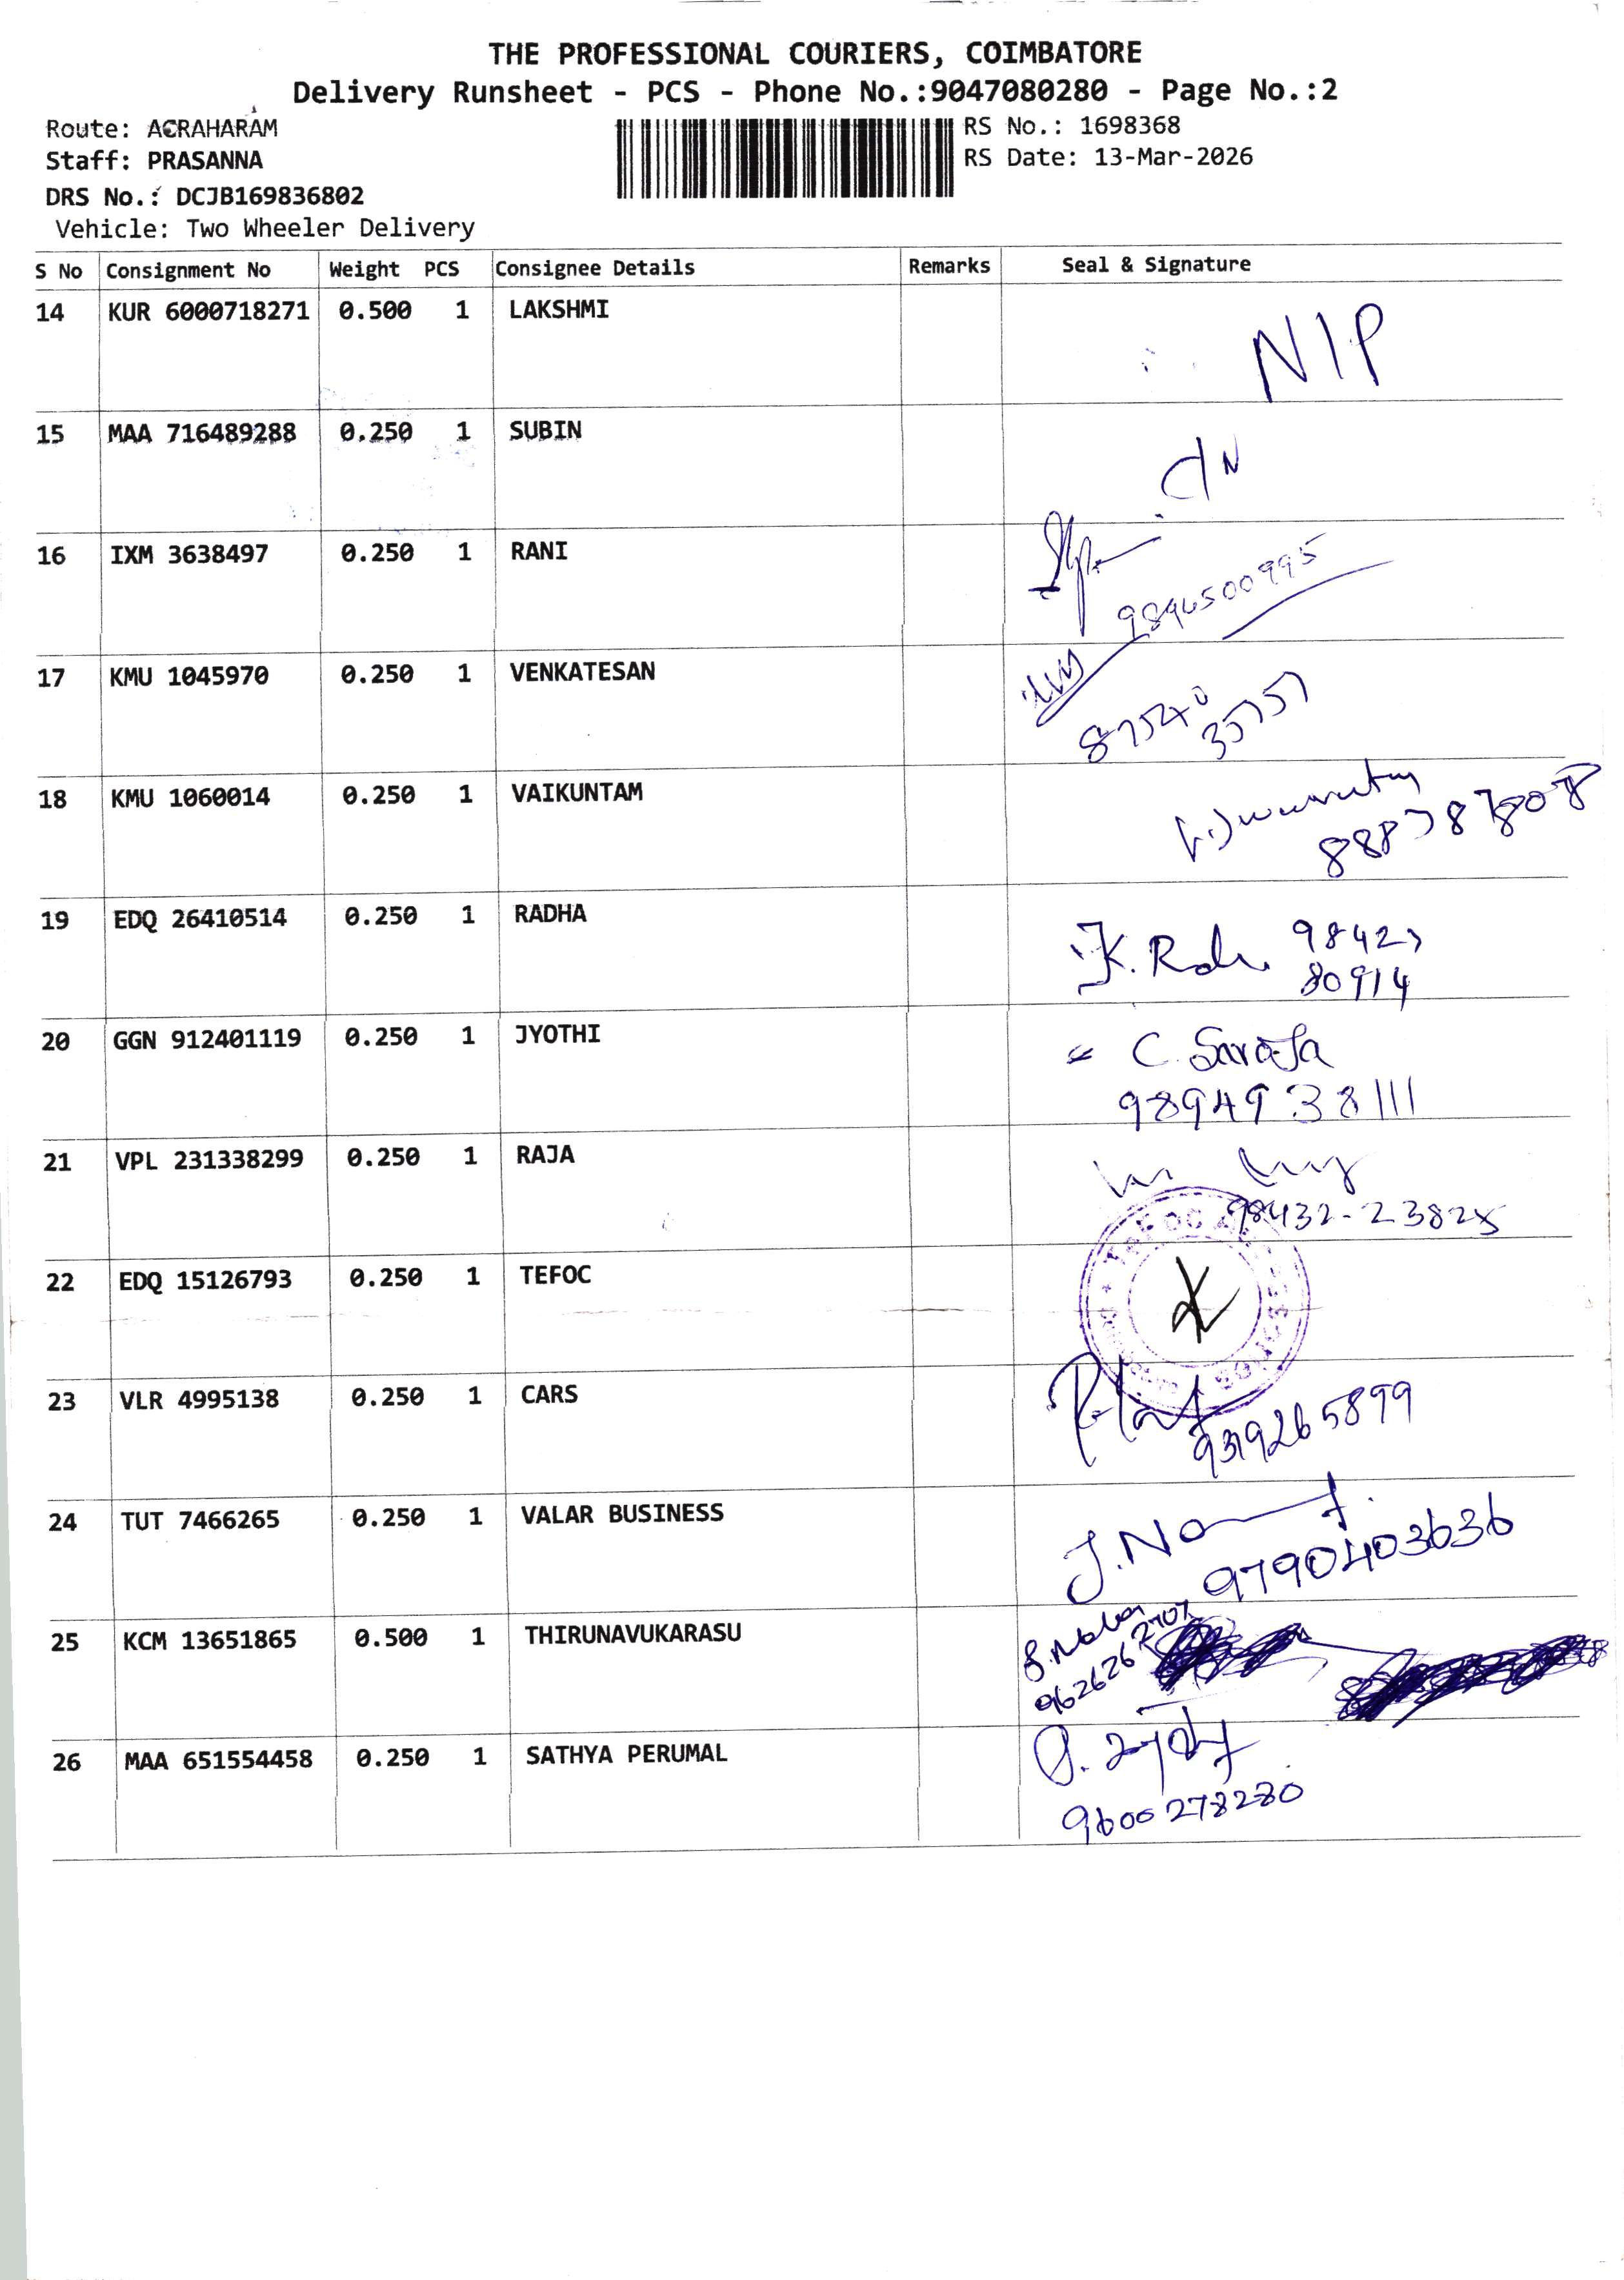 THE PROFESSIONAL COURIERS, COIMBATORE
Delivery Runsheet - PCS - Phone No.:9047080280 - Page No.:2
Route: AGRAHARAM
Staff: PRASANNA
DRS No.: DCJB169836802
Vehicle: Two Wheeler Delivery
RS No.: 1698368
RS Date: 13-Mar-2026
S No Consignment No Weight PCS Consignee Details Remarks Seal & Signature
14 KUR 6000718271 0.500 1 LAKSHMI NIP
15 MAA 716489288 0.250 1 SUBIN
16 IXM 3638497 0.250 1 RANI
9894500995
17 KMU 1045970 0.250 1 VENKATESAN
87540
35757
18 KMU 1060014 0.250 1 VAIKUNTAM
19 EDQ 26410514 0.250 1 RADHA K. Radha 98427
80914
20 GGN 912401119 0.250 1 JYOTHI C. Saroja
9894938111
21 VPL 231338299 0.250 1 RAJA
98432-23825
22 EDQ 15126793 0.250 1 TEFOC
23 VLR 4995138 0.250 1 CARS
24 TUT 7466265 0.250 1 VALAR BUSINESS
9790403636
25 KCM 13651865 0.500 1 THIRUNAVUKARASU
9626262707
26 MAA 651554458 0.250 1 SATHYA PERUMAL
9600278280